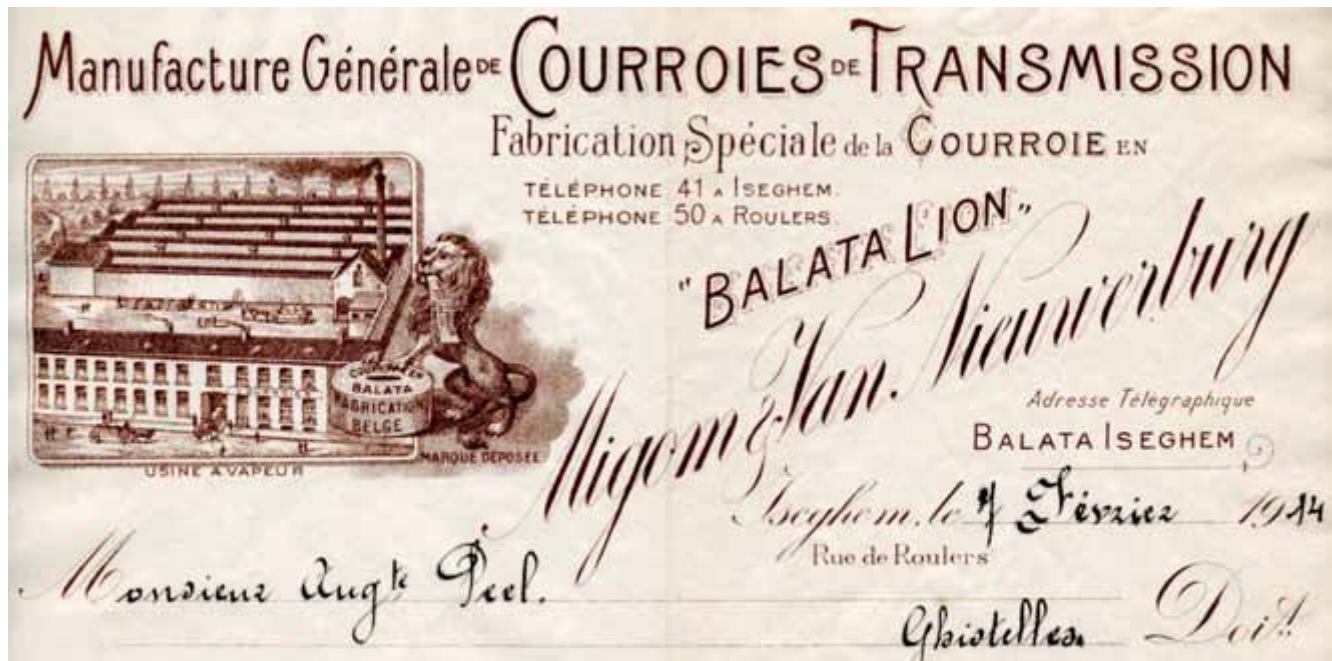 Manufacture Générale DE COURROIES DE TRANSMISSION
Fabrication Spéciale de la COURROIE EN
TÉLÉPHONE 41 A ISEGHEM.
TÉLÉPHONE 50 A ROULERS.
"BALATA LION"
Migom & Van Nieuwerburg
BALATA
FABRICATION
BELGE
MARQUE DÉPOSÉE
USINE A VAPEUR
Adresse Télégraphique
BALATA ISEGHEM
Iseghem, le Février 1914
Rue de Roulers
Monsieur Augte Peel.
Ghistelles. Doit: